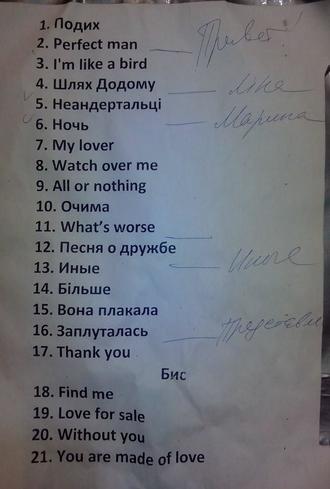 1. Подих
2. Perfect man Привет!
3. I'm like a bird
4. Шлях Додому Ліка
5. Неандертальці
6. Ночь Марина
7. My lover
8. Watch over me
9. All or nothing
10. Очима
11. What's worse
12. Песня о дружбе
13. Иные Иные
14. Більше
15. Вона плакала
16. Заплуталась
17. Thank you
Бис
18. Find me
19. Love for sale
20. Without you
21. You are made of love